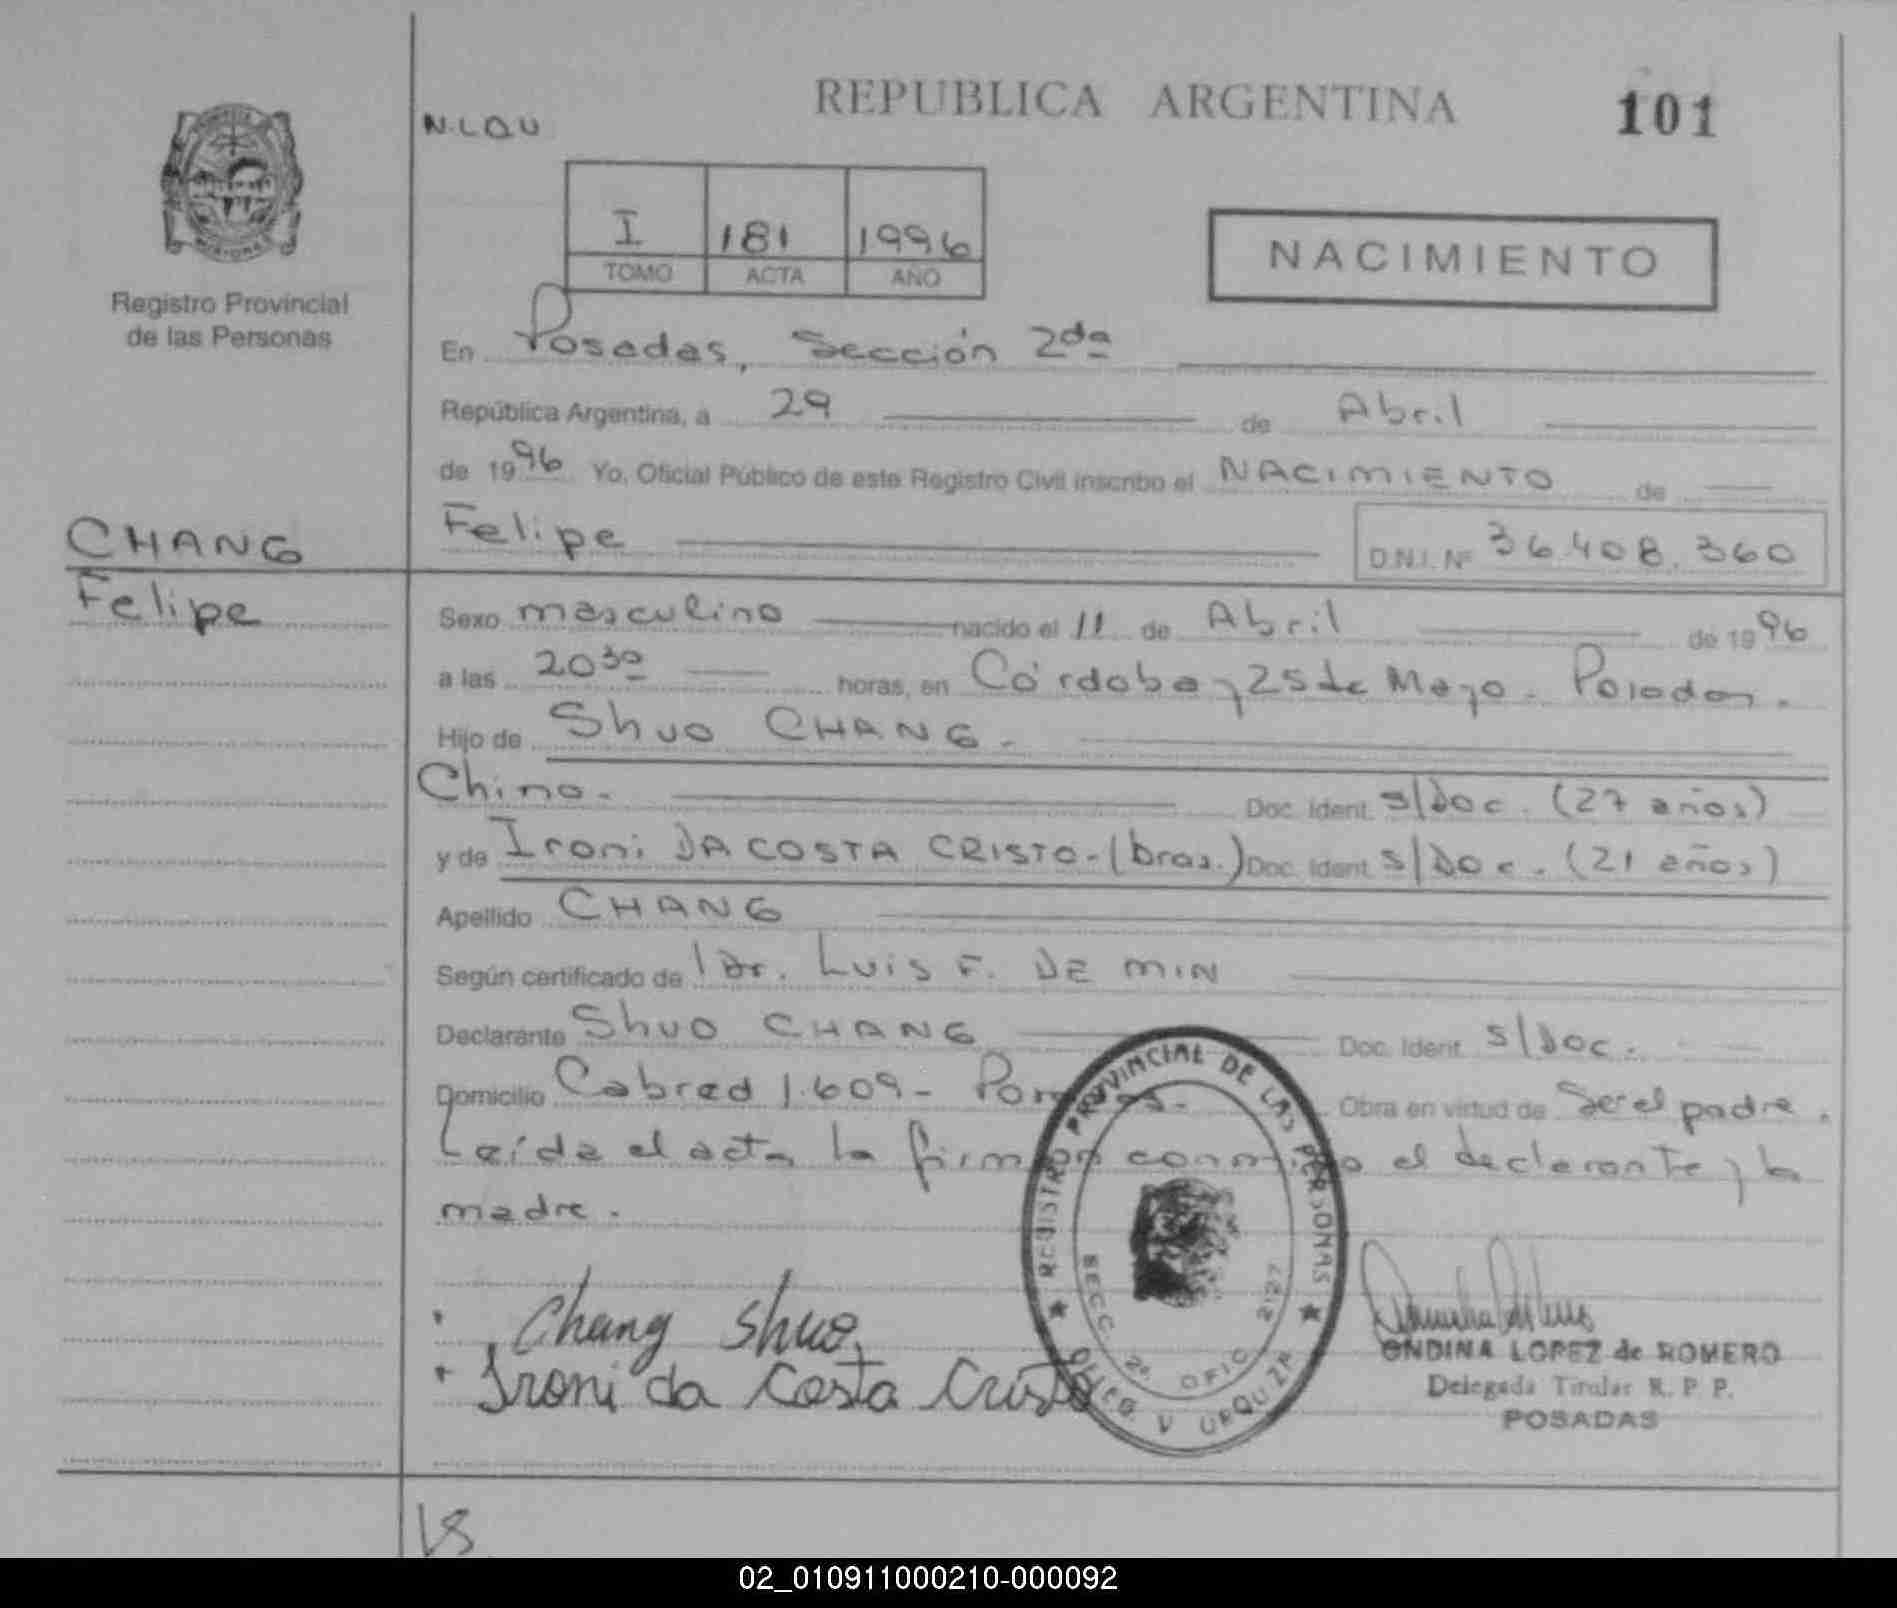 REPUBLICA ARGENTINA
101
N.LQU
I 181 1996
TOMO ACTA AÑO
NACIMIENTO
Registro Provincial
de las Personas
En Posadas, Sección 2da
República Argentina, a 29 de Abril
de 1996 Yo, Oficial Público de este Registro Civil inscribo el NACIMIENTO de
CHANG
Felipe
Felipe D.N.I. Nº 36.408.360
Sexo masculino nacido el 11 de Abril de 1996
a las 20 30 horas, en Córdoba y 25 de Mayo - Posadas.
Hijo de Shuo CHANG.
Chino. Doc. Ident. s/Doc. (27 años)
y de Ironi DA COSTA CRISTO-(bras.) Doc. Ident. s/Doc. (21 años)
Apellido CHANG
Según certificado de l Dr. Luis F. DE MIN
Declarante Shuo CHANG Doc. Ident. s/Doc.
Domicilio Cabred 1.609- Posadas. Obra en virtud de Ser el padre.
Leída el acta la firman conmigo el declarante y la
madre.
Chang Shuo
Ironi da Costa Cristo
REGISTRO PROVINCIAL DE LAS PERSONAS
SECC. 2º. OFIC. 2127
DELEG. V. URQUIZA
ONDINA LOPEZ de ROMERO
Delegada Titular R. P. P.
POSADAS
02_010911000210-000092